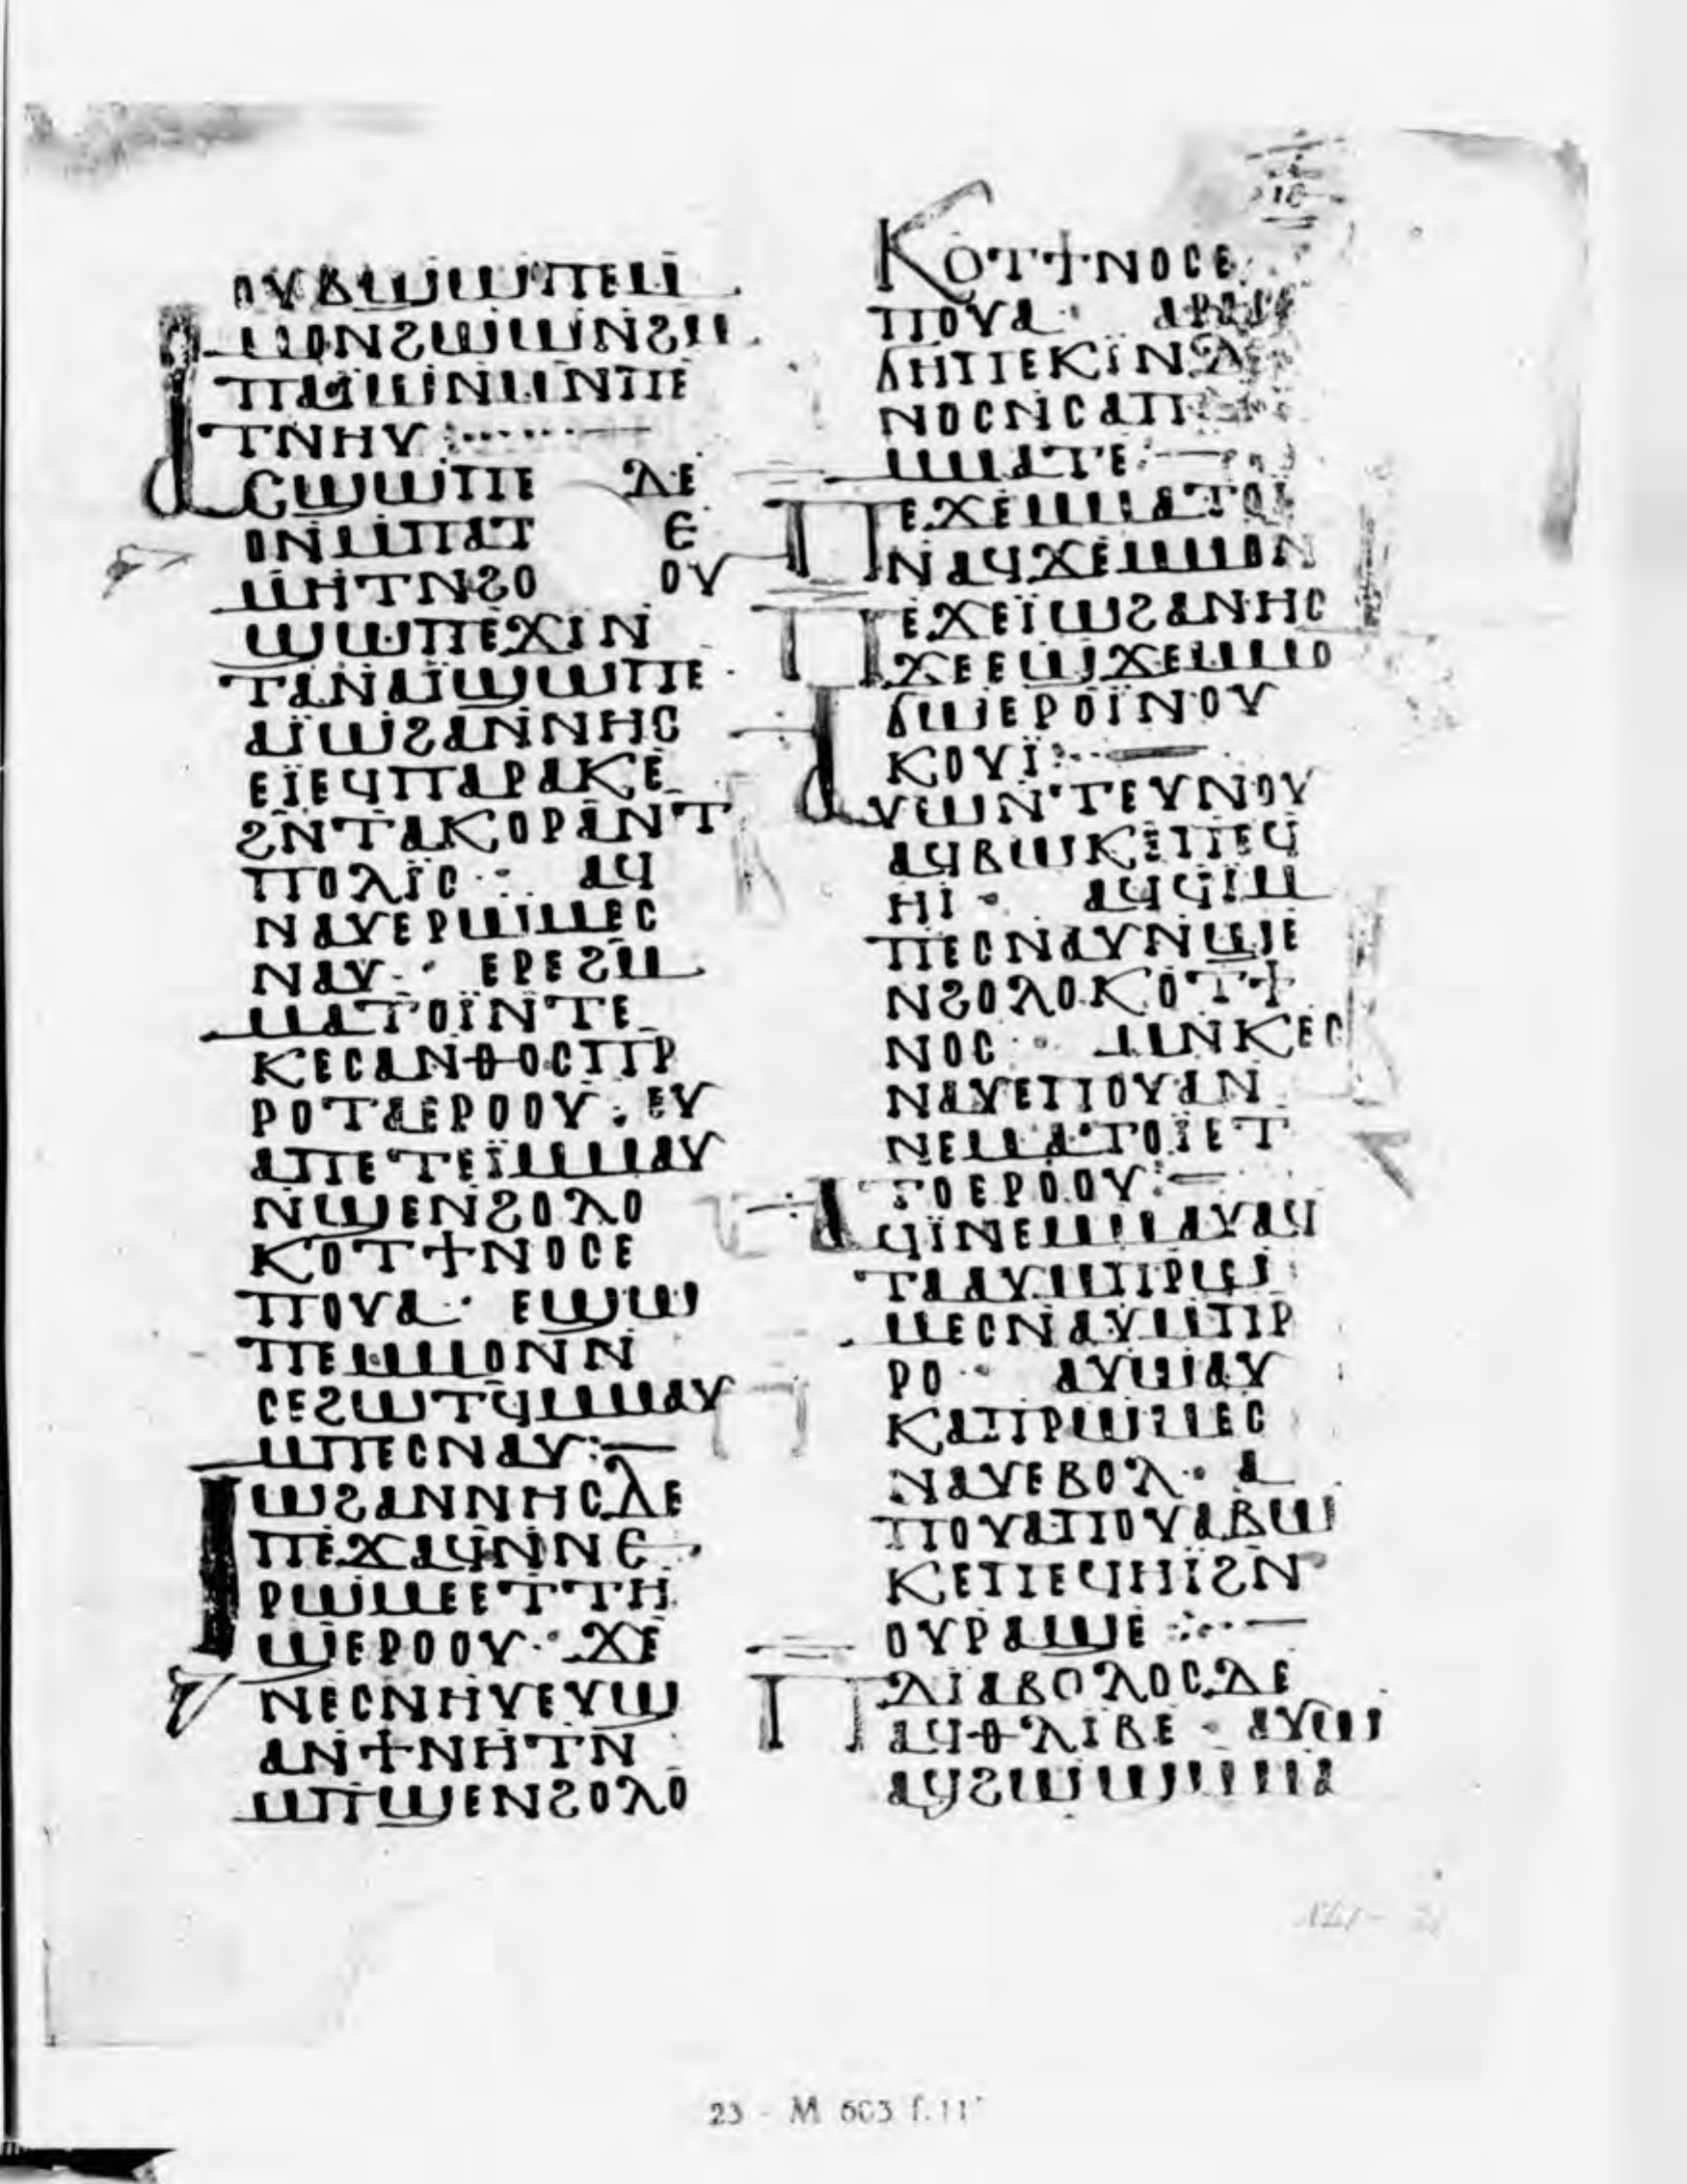 ⲟⲩⲃⲱϣⲱⲡⲉⲙ
ⲙⲟⲛϩⲱⲱⲛϩⲙ
ⲡⲁϣⲓⲛⲙⲛⲡⲉ
ⲧⲛⲏⲩ
ⲁⲥϣⲱⲡⲉ ⲇⲉ
ⲟⲛⲙⲡⲁⲧ ⲉ
ⲙⲏⲧⲛϩⲟ ⲟⲩ
ϣⲱⲡⲉϫⲓⲛ
ⲧⲁⲛⲁⲓϣⲱⲡⲉ
ⲁⲓⲱϩⲁⲛⲛⲏⲥ
ⲉⲓⲉϥⲡⲁⲣⲁⲕⲉ
ϩⲛⲧⲁⲕⲟⲣⲁⲛⲧ
ⲡⲟⲗⲓⲥ ⲁϥ
ⲛⲁⲩⲉⲣⲱⲙⲉⲥ
ⲛⲁⲩ ⲉⲣⲉϩⲙ
ⲙⲁⲧⲟⲓⲛⲧⲉ
ⲕⲉⲥⲁⲛⲑⲟⲥⲡⲣ
ⲣⲟⲧⲁⲉⲣⲟⲟⲩ ⲉⲩ
ⲁⲡⲉⲧⲉⲓⲙⲙⲁⲩ
ⲛϣⲉⲛϩⲟⲗⲟ
ⲕⲟⲧϯⲛⲟⲥⲉ
ⲡⲟⲩⲁ ⲉϣⲱ
ⲡⲉⲙⲙⲟⲛⲛ
ⲥⲉϩⲱⲧϥⲙⲙⲁⲩ
ⲙⲡⲉⲥⲛⲁⲩ
ⲓⲱϩⲁⲛⲛⲏⲥⲇⲉ
ⲡⲉϫⲁϥⲛⲛⲉ
ⲣⲱⲙⲉⲉⲧⲧⲏ
ϣⲉⲣⲟⲟⲩ ϫⲉ
ⲛⲉⲥⲛⲏⲩⲉⲩϣ
ⲁⲛϯⲛⲏⲧⲛ
ⲙⲡϣⲉⲛϩⲟⲗⲟ
ⲕⲟⲧϯⲛⲟⲥⲉ
ⲡⲟⲩⲁ
ⲗⲏⲡⲉⲕⲓⲛⲇ
ⲛⲟⲥⲛⲥⲁⲡ
ⲙⲙⲁⲧⲉ
ⲡⲉϫⲉⲙⲙⲁⲧⲟⲓ
ⲛⲁϥϫⲉⲙⲙⲟⲛ
ⲡⲉϫⲉⲓⲱϩⲁⲛⲏⲥ
ϫⲉⲉϣϫⲉⲙⲙⲟ
ⲗⲱⲉⲣⲟⲓⲛⲟⲩ
ⲕⲟⲩⲓ
ⲁⲩⲱⲛⲧⲉⲩⲛⲟⲩ
ⲁϥⲃⲱⲕⲉⲡⲉϥ
ⲏⲓ ⲁϥϥⲓⲙ
ⲡⲉⲥⲛⲁⲩⲛϣⲉ
ⲛϩⲟⲗⲟⲕⲟⲧϯ
ⲛⲟⲥ ⲙⲛⲕⲉⲥ
ⲛⲁⲩⲉⲡⲟⲩⲁⲛ
ⲛⲉⲙⲁⲧⲟⲓⲉⲧ
ⲧⲟⲉⲣⲟⲟⲩ
ⲁϥⲓⲛⲉⲙⲙⲁⲩⲁϥ
ⲧⲁⲁⲩⲙⲡⲣⲱ
ⲙⲉⲥⲛⲁⲩⲙⲡⲣ
ⲣⲟ ⲁⲩⲱⲁⲩ
ⲕⲁⲡⲣⲱⲙⲉⲥ
ⲛⲁⲩⲉⲃⲟⲗ ⲁ
ⲡⲟⲩⲁⲡⲟⲩⲁⲃⲱ
ⲕⲉⲡⲉϥⲏⲓϩⲛ
ⲟⲩⲣⲁϣⲉ
ⲡⲇⲓⲁⲃⲟⲗⲟⲥⲇⲉ
ⲁϥⲑⲗⲓⲃⲉ ⲁⲩⲱ
ⲁϥϩⲱϣⲙⲙⲁ
23 - M 603 f.11